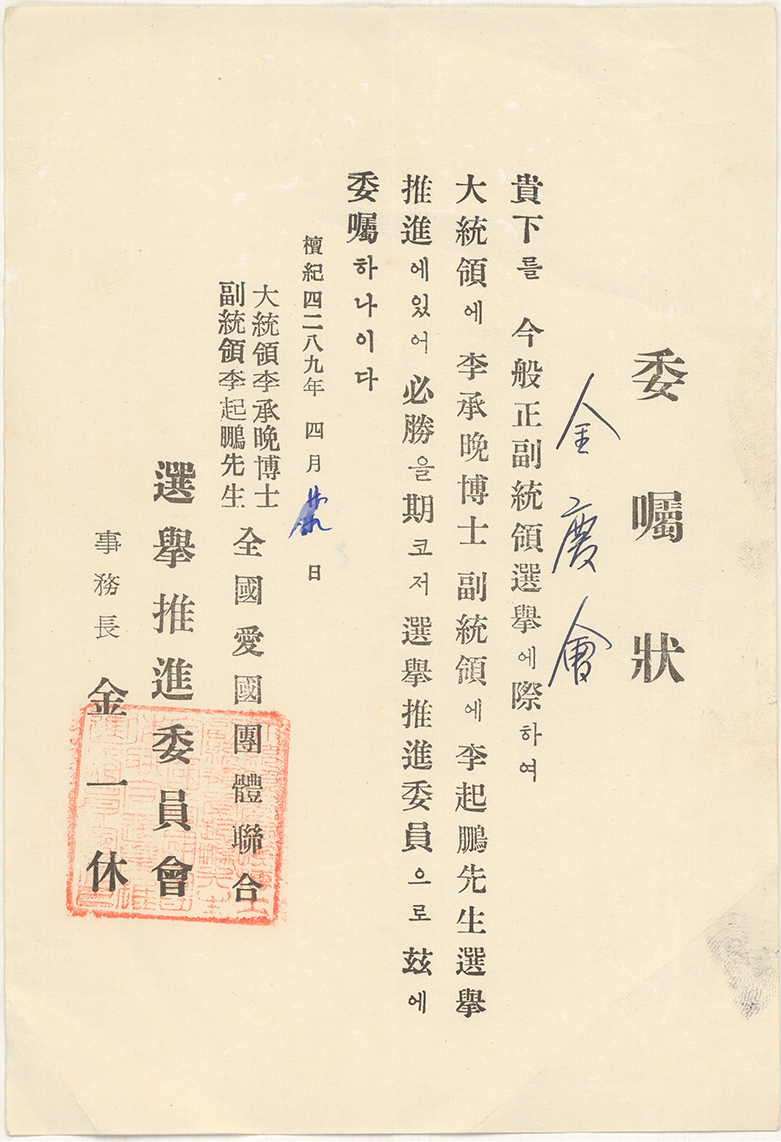 委囑狀
金慶會
貴下를 今般正副統領選擧에際하여
大統領에 李承晩博士 副統領에 李起鵬先生選擧
推進에있어 必勝을期코저 選擧推進委員으로 玆에
委囑하나이다
檀紀四二八九年 四月 日
大統領李承晩博士
副統領李起鵬先生
全國愛國團體聯合
選擧推進委員會
事務長 金一休